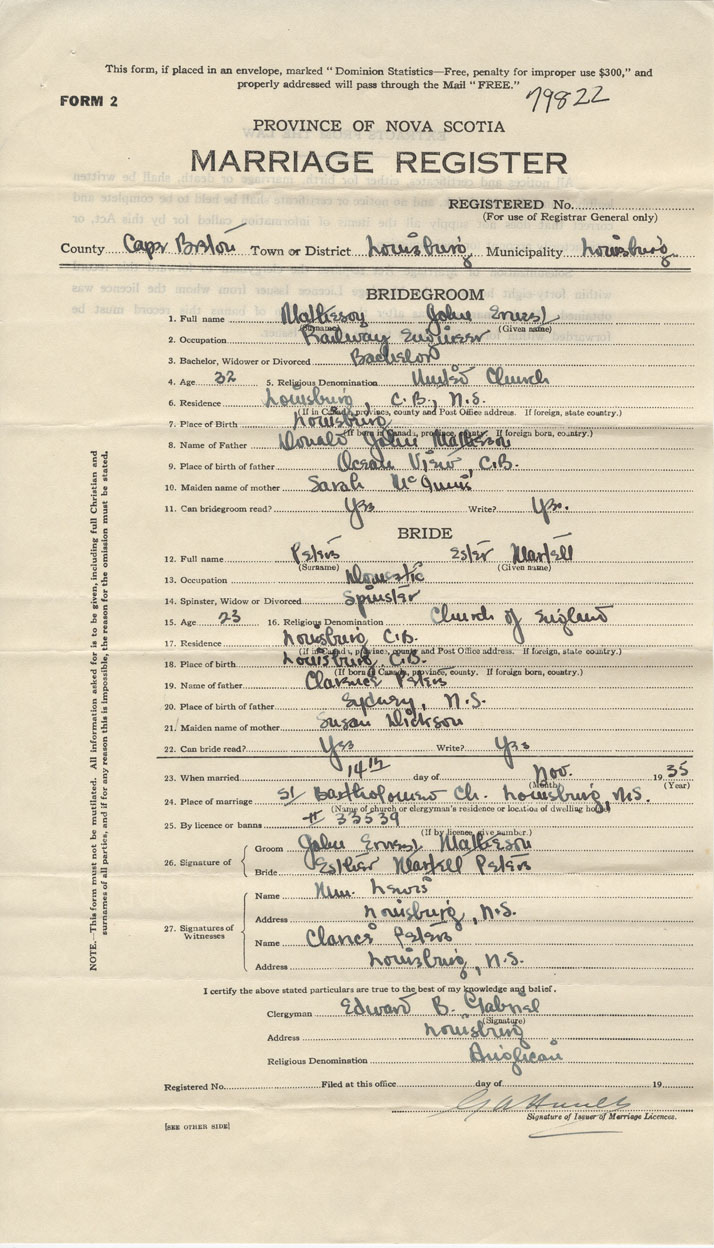 This form, if placed in an envelope, marked "Dominion Statistics—Free, penalty for improper use $300," and
properly addressed will pass through the Mail "FREE."
FORM 2
79822
PROVINCE OF NOVA SCOTIA
MARRIAGE REGISTER
REGISTERED No.
(For use of Registrar General only)
County Cape Breton Town or District Louisburg Municipality Louisburg
BRIDEGROOM
1. Full name Matheson John Ernest
(Surname) (Given name)
2. Occupation Railway Engineer
3. Bachelor, Widower or Divorced Bachelor
4. Age 32 5. Religious Denomination United Church
6. Residence Louisburg C.B., N.S.
(If in Canada, province, county and Post Office address. If foreign, state country.)
7. Place of Birth Louisburg
(If born in Canada, province, county. If foreign born, country.)
8. Name of Father Donald John Matheson
9. Place of birth of father Ocean View, C.B.
10. Maiden name of mother Sarah
11. Can bridegroom read? Yes Write? Yes.
BRIDE
12. Full name Peters Ester Martell
(Surname) (Given name)
13. Occupation Domestic
14. Spinster, Widow or Divorced Spinster
15. Age 23 16. Religious Denomination Church of England
17. Residence Louisburg C.B.
(If in Canada, province, county and Post Office address. If foreign, state country.)
18. Place of birth Louisburg, C.B.
(If born in Canada, province, county. If foreign born, country.)
19. Name of father Clarence Peters
20. Place of birth of father Sydney, N.S.
21. Maiden name of mother Susan Dickson
22. Can bride read? Yes Write? Yes
23. When married 14th day of Nov. 1935
(Month) (Year)
24. Place of marriage St Bartholomew Ch. Louisburg, N.S.
(Name of church or clergyman's residence or location of dwelling house)
25. By licence or banns # 33539
(If by licence, give number.)
26. Signature of Groom John Ernest Matheson
Bride Esther Martell Peters
27. Signatures of Witnesses
Name Wm. Lewis
Address Louisburg, N.S.
Name Peters
Address Louisburg, N.S.
I certify the above stated particulars are true to the best of my knowledge and belief.
Clergyman Edward B. Gabriel
(Signature)
Address Louisburg
Religious Denomination Anglican
Registered No. Filed at this office day of 19
Signature of Issuer of Marriage Licences.
[SEE OTHER SIDE]
NOTE.—This form must not be mutilated. All information asked for is to be given, including full Christian and
surnames of all parties, and if for any reason this is impossible, the reason for the omission must be stated.